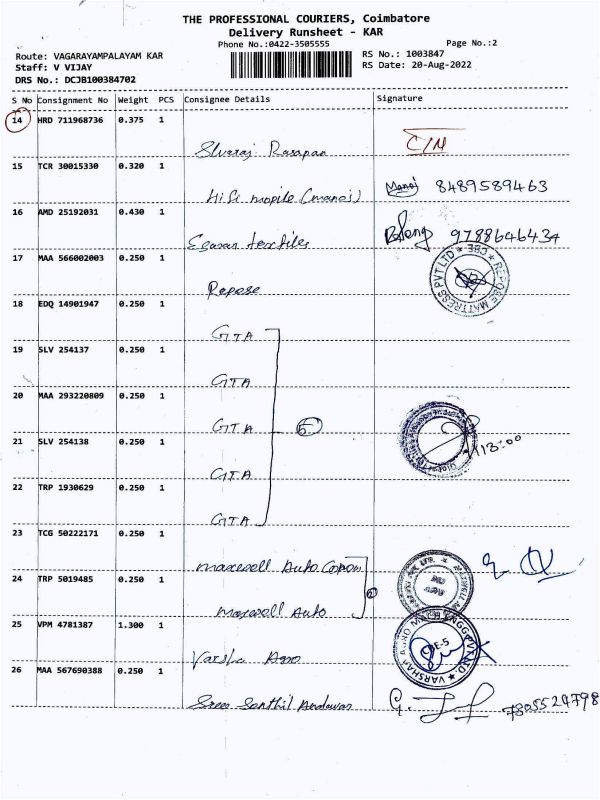 THE PROFESSIONAL COURIERS, Coimbatore
Delivery Runsheet - KAR
Phone No.:0422-3505555
Page No.:2
Route: VAGARAYAMPALAYAM KAR
RS No.: 1003847
Staff: V VIJAY
RS Date: 20-Aug-2022
DRS No.: DCJB100384702
S No Consignment No Weight PCS Consignee Details Signature
14 HRD 711968736 0.375 1
C/N
15 TCR 30015330 0.320 1
Hifi mopile (manoj) Manoj 8489589463
16 AMD 25192031 0.430 1
textiles 9788646434
17 MAA 566002003 0.250 1
Repose REPOSE MATTRESS PVT LTD CBE
18 EDQ 14901947 0.250 1
GTA
19 SLV 254137 0.250 1
GTA
20 MAA 293220809 0.250 1
GTA 5
21 SLV 254138 0.250 1
GTA 13:00
22 TRP 1930629 0.250 1
GTA
23 TCG 50222171 0.250 1
Auto
24 TRP 5019485 0.250 1
Auto 2
25 VPM 4781387 1.300 1
Varsha Agro CBE-5
26 MAA 567690388 0.250 1
Sree Senthil Andavar